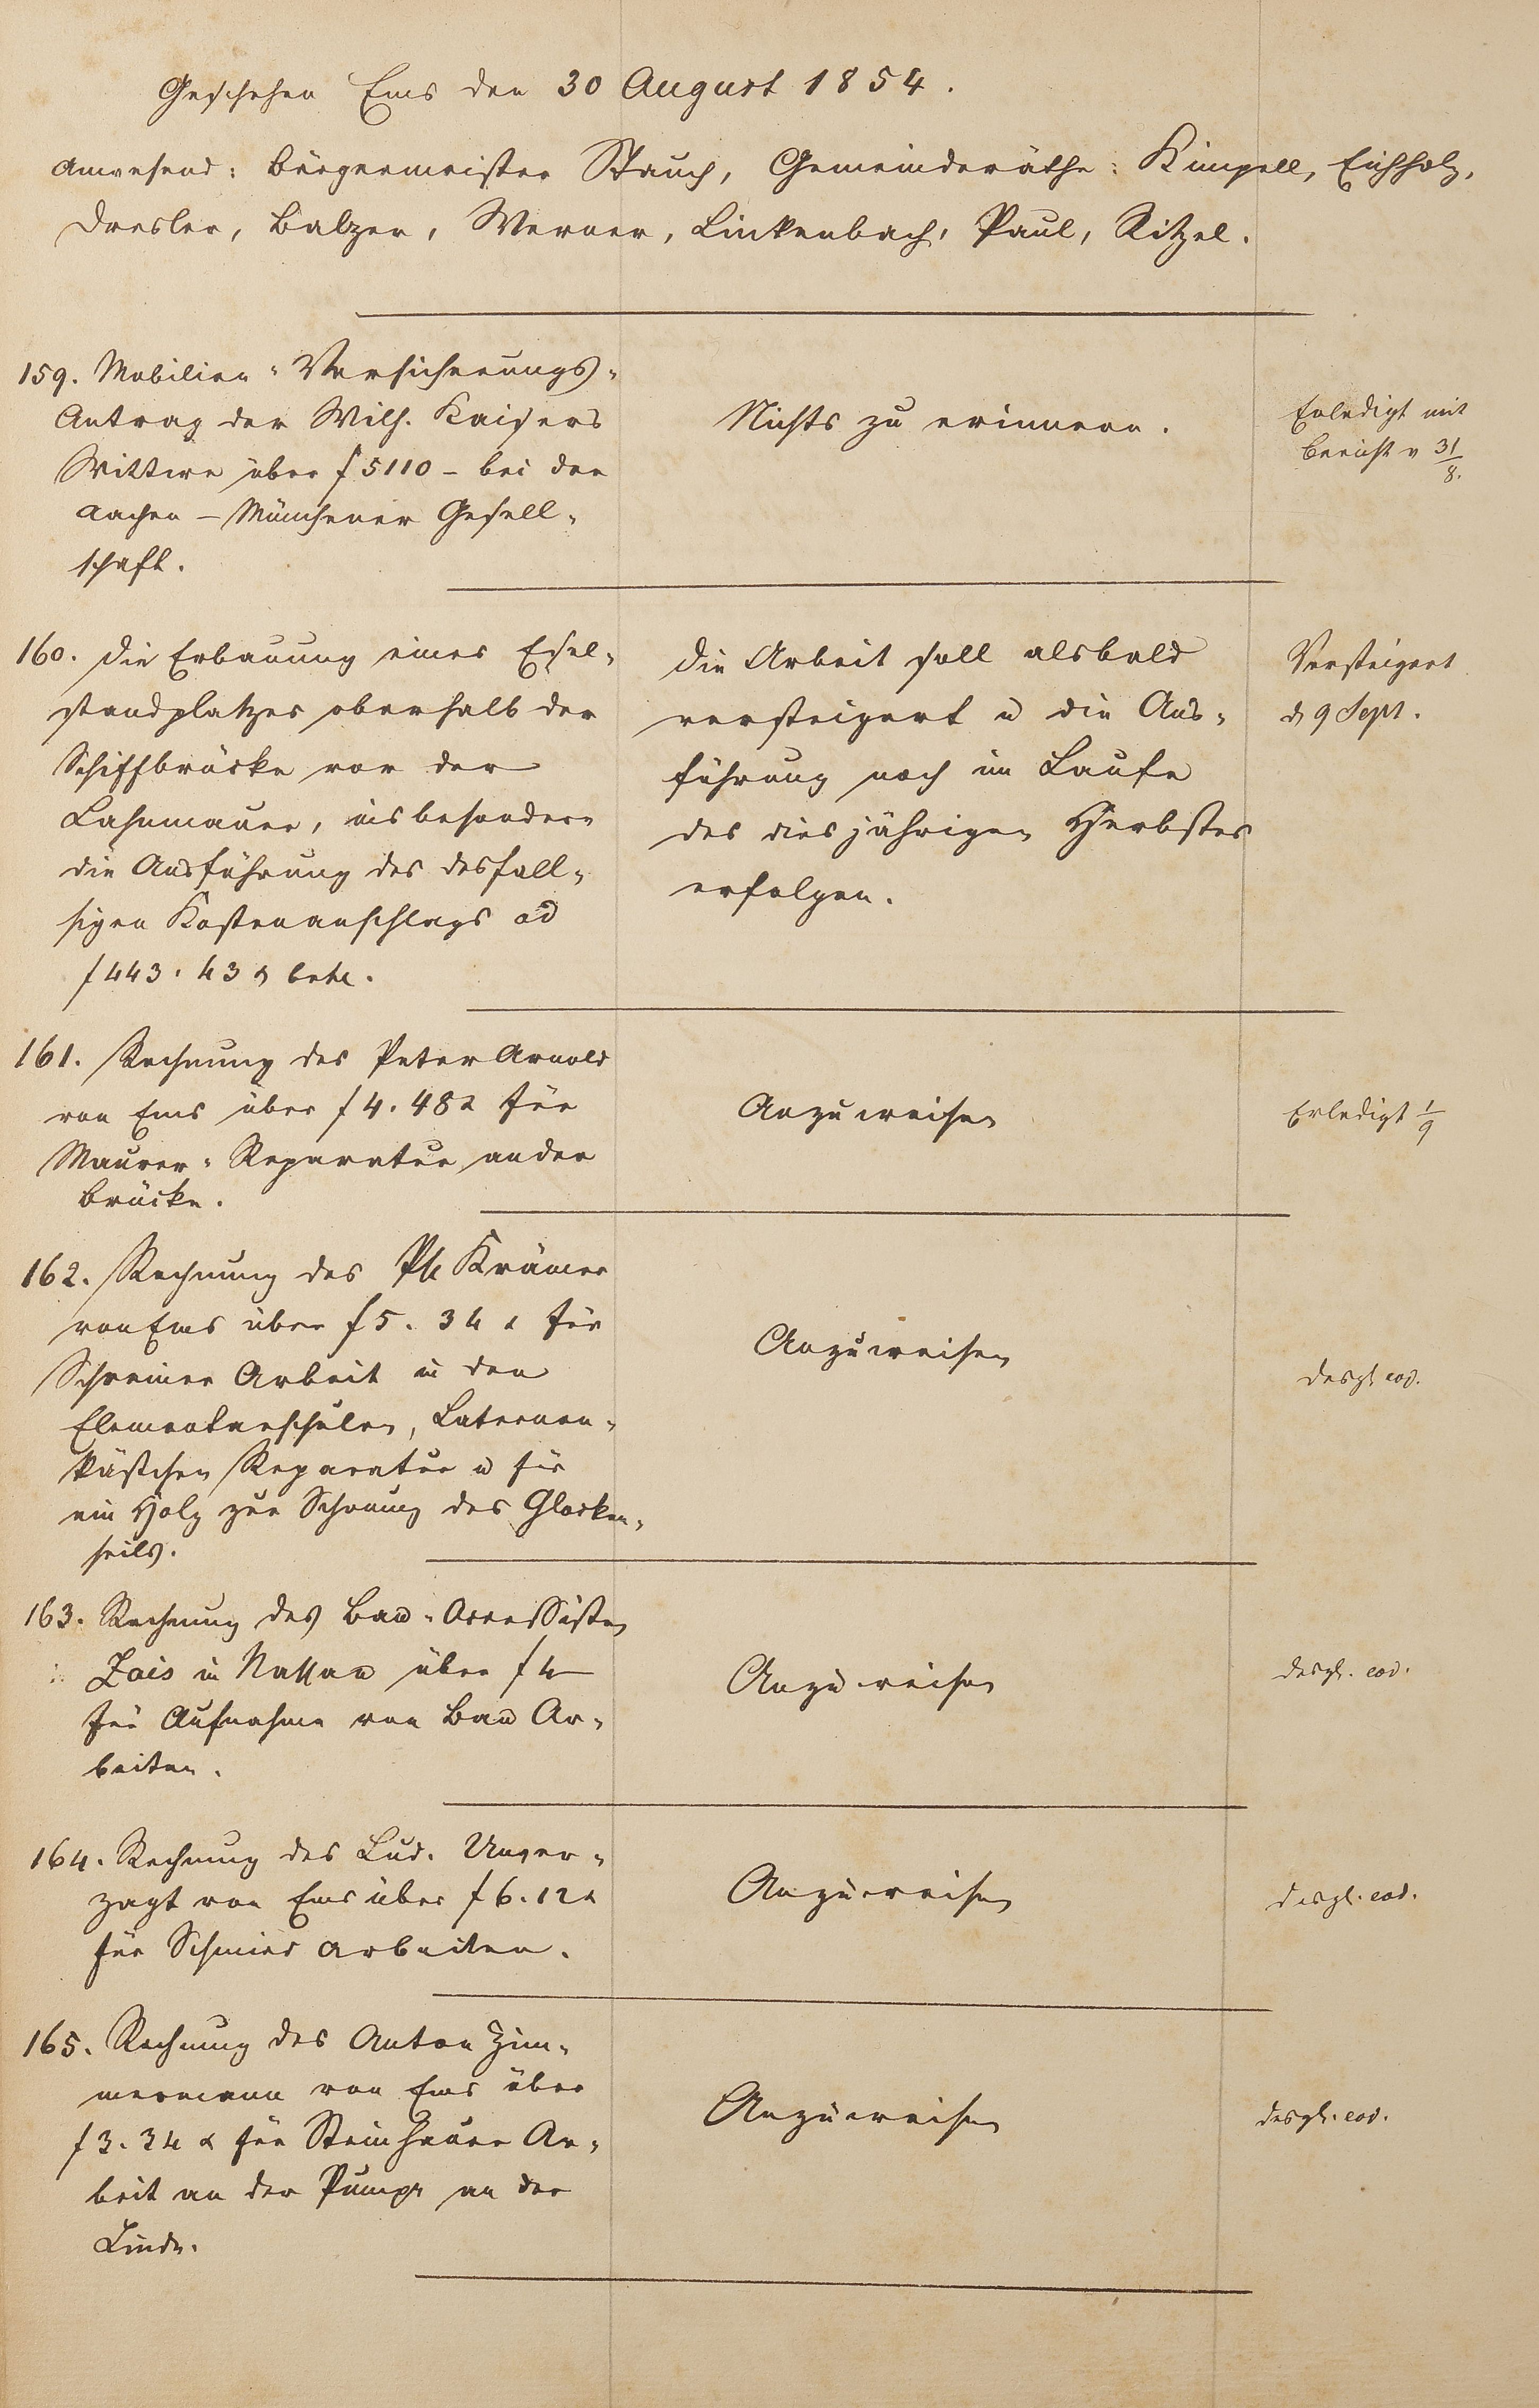 Geschehen Ems den 30 August 1854.
Anwesend: Bürgermeister Stauch, Gemeinderäthe: Kimpell, Eichholz,
Dresler, Balzer, Werner, Linkenbach, Paul, Ritzel.
159. Mobilien-Versicherungs-
Antrag der Wilh. Kaisers
Wittwe über f 5110 – bei der
Aachen – Münchener Gesell-
schaft.
Nichts zu erinnern.
Erledigt mit
Bericht v 31/8.
160. Die Erbauung eines Esel-
standplatzes oberhalb der
Schiffbrücke vor der
Lahnmauer, insbesondere
die Ausführung des desfall-
sigen Kostenanschlags ad
f 443. 43 x betr.
Die Arbeit soll alsbald
versteigert u die Aus-
führung noch im Laufe
des diesjährigen Herbstes
erfolgen.
Versteigert
d 9 Sept.
161. Rechnung des Peter Arnold
von Ems über f 4. 48 x für
Maurer-Reparatur an der
Brücke.
Anzuweisen
Erledigt 1/9
162. Rechnung des Ph Krämer
von Ems über f 5. 34 x für
Schreiner Arbeit in den
Elementarschulen, Laternen-
kästchen Reparatur u für
ein Holz zur Schonung des Glocken-
seils.
Anzuweisen
desgl eod.
163. Rechnung des Bau-Accessisten
Zais in Nassau über f 4
für Aufnahme von Bau Ar-
beiten.
Anzuweisen
desgl. eod.
164. Rechnung des Lud. Unver-
zagt von Ems über f 6. 12 x
für Schmied Arbeiten.
Anzuweisen
desgl. eod.
165. Rechnung des Anton Zim-
mermann von Ems über
f 3. 34 x für Steinhauer Ar-
beit an der Pumpe an der
Linde.
Anzuweisen
desgl. eod.